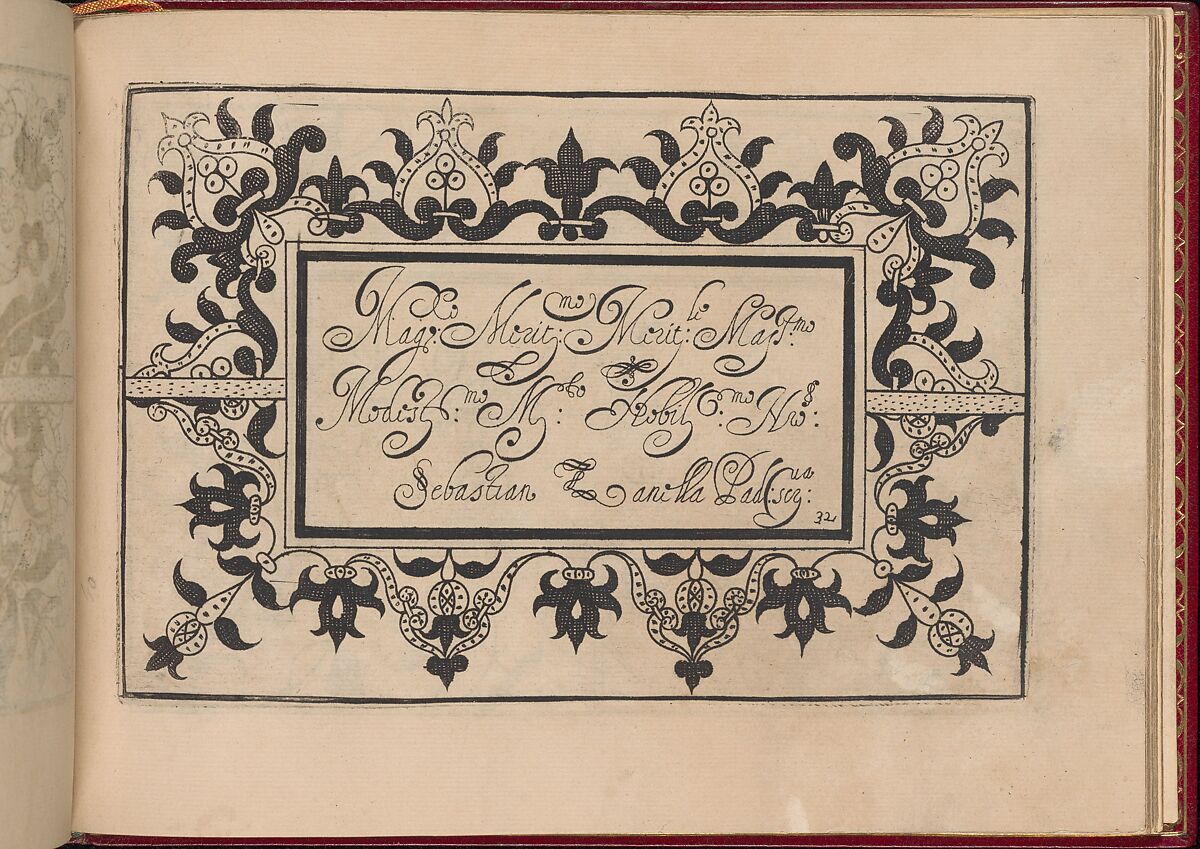 Mag:co Merit:mo Merit:le Maest:mo
Modest:mo M:to Nobil:mo Nro:
Sebastian Zanella Pad: scr:
32